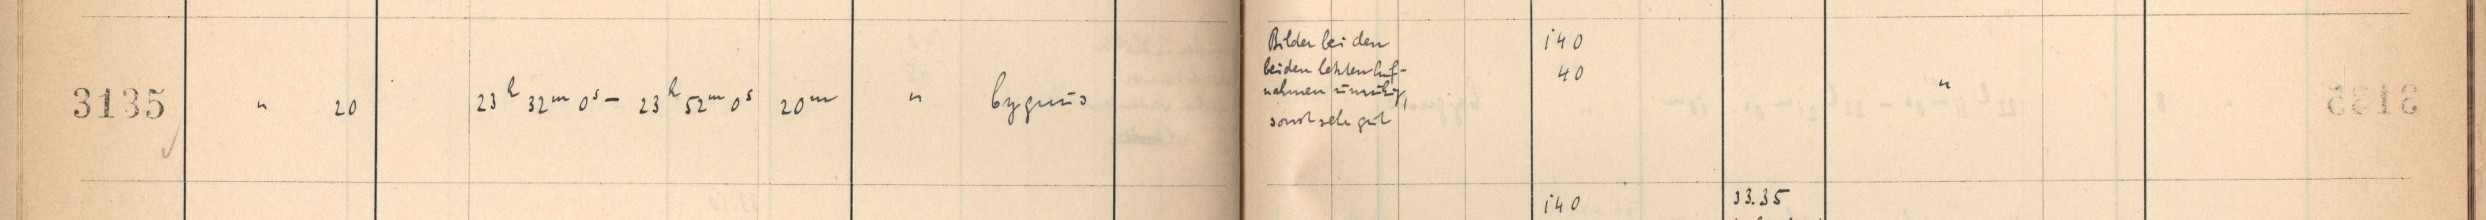 3135 " 20 23h 32m 0s – 23h 52m 0s 20m " Cygnus
Bilder bei den
beiden letzten Auf-
nahmen unruhig,
sonst sehr gut
i40
40
"
i40 33.35